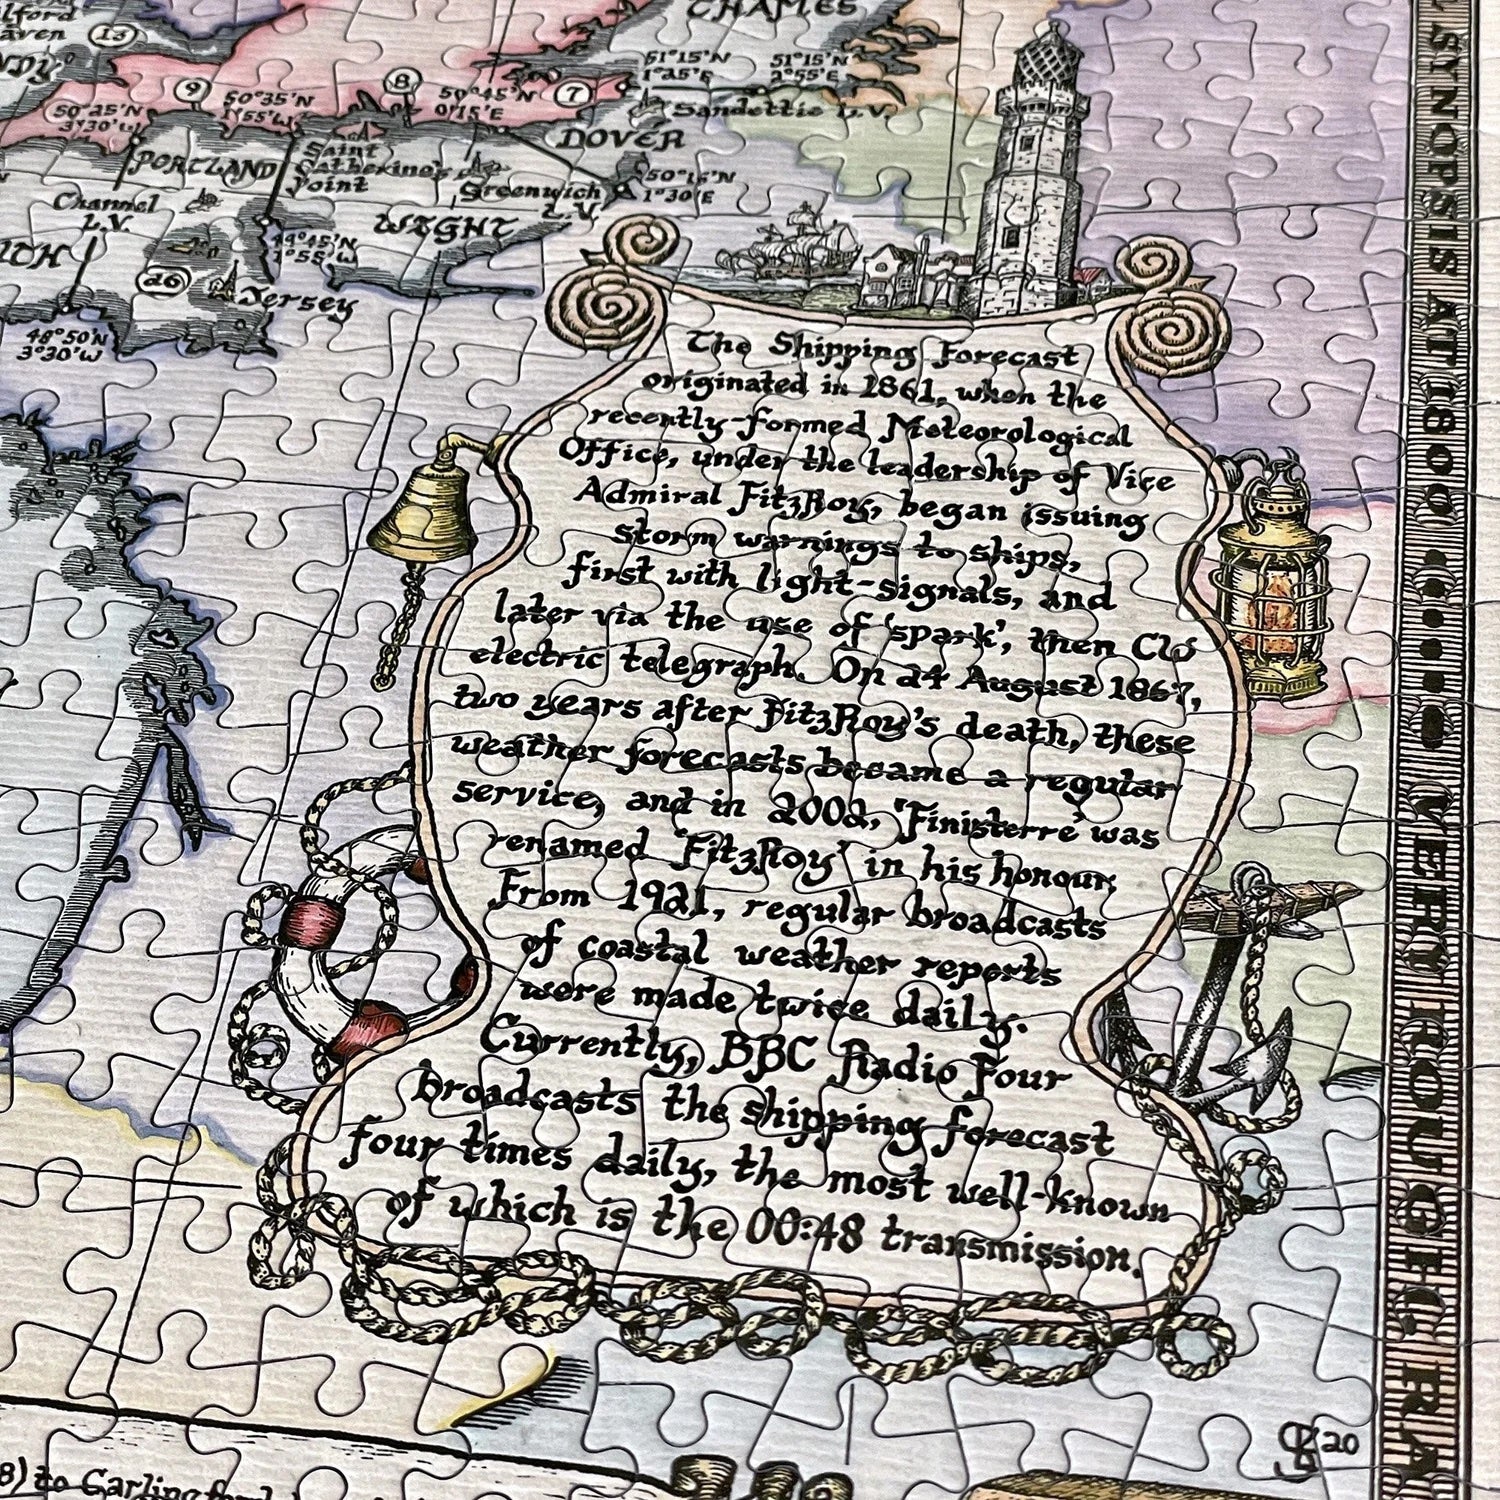 CHAMES
13
51°15'N
1°25'E
51°15'N
2°55'E
9
8
7
50°25'N
3°30'W
50°35'N
1°55'W
50°45'N
0°15'E
Sandettie L.V.
DOVER
PORTLAND
Saint
Catherine's
Point
50°15'N
1°30'E
Greenwich
L.V.
Channel
L.V.
WIGHT
49°45'N
1°55'W
26
Jersey
48°50'N
3°30'W
The Shipping Forecast
originated in 1861, when the
recently-formed Meteorological
Office, under the leadership of Vice
Admiral FitzRoy, began issuing
storm warnings to ships,
first with light-signals, and
later via the use of 'spark', then
electric telegraph. On 24 August 1867,
two years after FitzRoy's death, these
weather forecasts became a regular
service, and in 2002, 'Finisterre' was
renamed 'FitzRoy' in his honour.
From 1921, regular broadcasts
of coastal weather reports
were made twice daily.
Currently, BBC Radio Four
broadcasts the shipping forecast
four times daily, the most well-known
of which is the 00:48 transmission.
SYNOPSIS AT 1800
VERY ROUGH. RA
20
8) to Carlingford